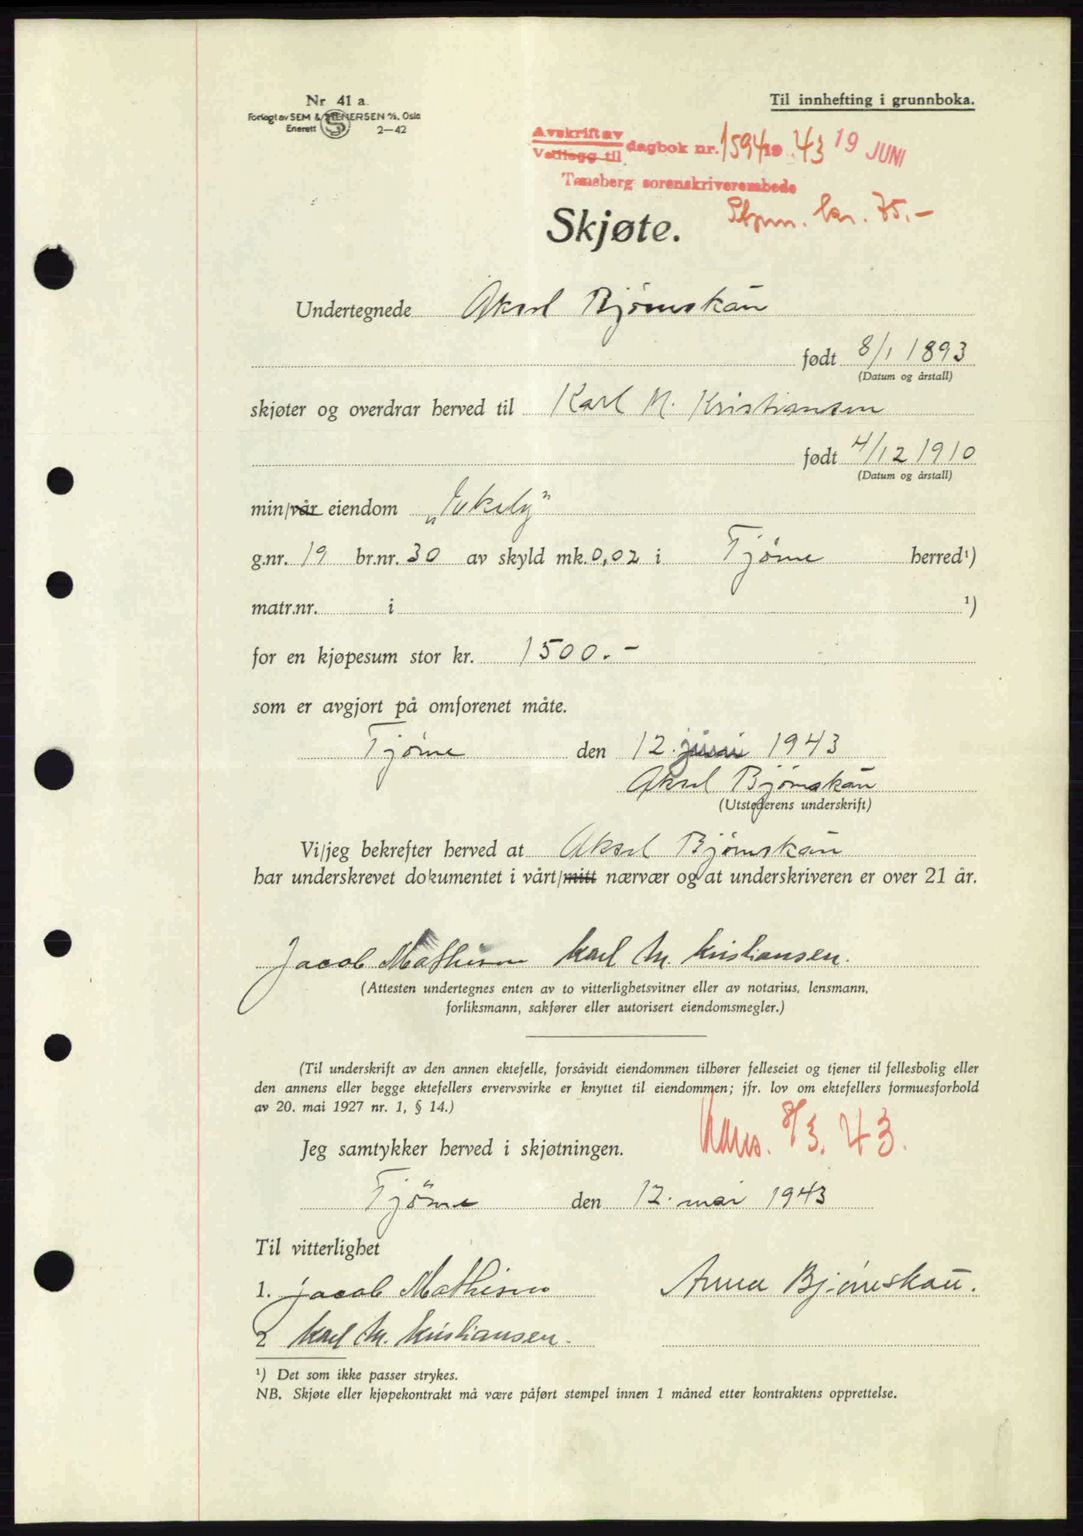 Nr 41 a.
Forlagt av SEM & STENERSEN A/S, Oslo
Enerett 2-42
Til innhefting i grunnboka.
Avskrift av
Vedlegg til dagbok nr. 1594 19 43 19 JUNI
Tønsberg sorenskriverembede
Skjøte.
Stpm. kr. 75.-
Undertegnede Aksel Bjørnskau
født 8/1 1893
(Datum og årstall)
skjøter og overdrar herved til Karl M. Kristiansen
født 4/12 1910
(Datum og årstall)
min/vår eiendom „Eikely"
g.nr. 19 br.nr. 30 av skyld mk. 0,02 i Tjøme herred¹)
matr.nr. i ¹)
for en kjøpesum stor kr. 1500.-
som er avgjort på omforenet måte.
Tjøme den 12. juni 1943
Aksel Bjørnskau
(Utstederens underskrift)
Vi/jeg bekrefter herved at Aksel Bjørnskau
har underskrevet dokumentet i vårt/mitt nærvær og at underskriveren er over 21 år.
Jacob Mathisen Karl M. Kristiansen.
(Attesten undertegnes enten av to vitterlighetsvitner eller av notarius, lensmann,
forliksmann, sakfører eller autorisert eiendomsmegler.)
(Til underskrift av den annen ektefelle, forsåvidt eiendommen tilhører felleseiet og tjener til fellesbolig eller
den annens eller begge ektefellers ervervsvirke er knyttet til eiendommen; jfr. lov om ektefellers formuesforhold
av 20. mai 1927 nr. 1, § 14.)
8/3. 43.
Jeg samtykker herved i skjøtningen.
Tjöme den 12. mai 1943
Til vitterlighet
1. Jacob Mathisen Anna Bjørnskau.
2 Karl M. Kristiansen.
¹) Det som ikke passer strykes.
NB. Skjøte eller kjøpekontrakt må være påført stempel innen 1 måned etter kontraktens opprettelse.